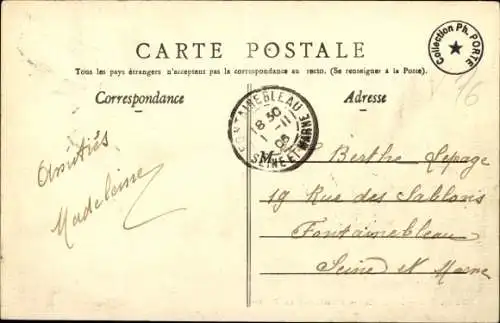 CARTE POSTALE
Collection Ph. PORTE
Tous les pays étrangers n'acceptent pas la correspondance au recto. (Se renseigner à la Poste).
Correspondance
Adresse
16
FONTAINEBLEAU
18 30
-11
06
SEINE ET MARNE
Amitiés
Madeleine
Berthe Lepage
19 Rue des Sablons
Fontainebleau
Seine et Marne